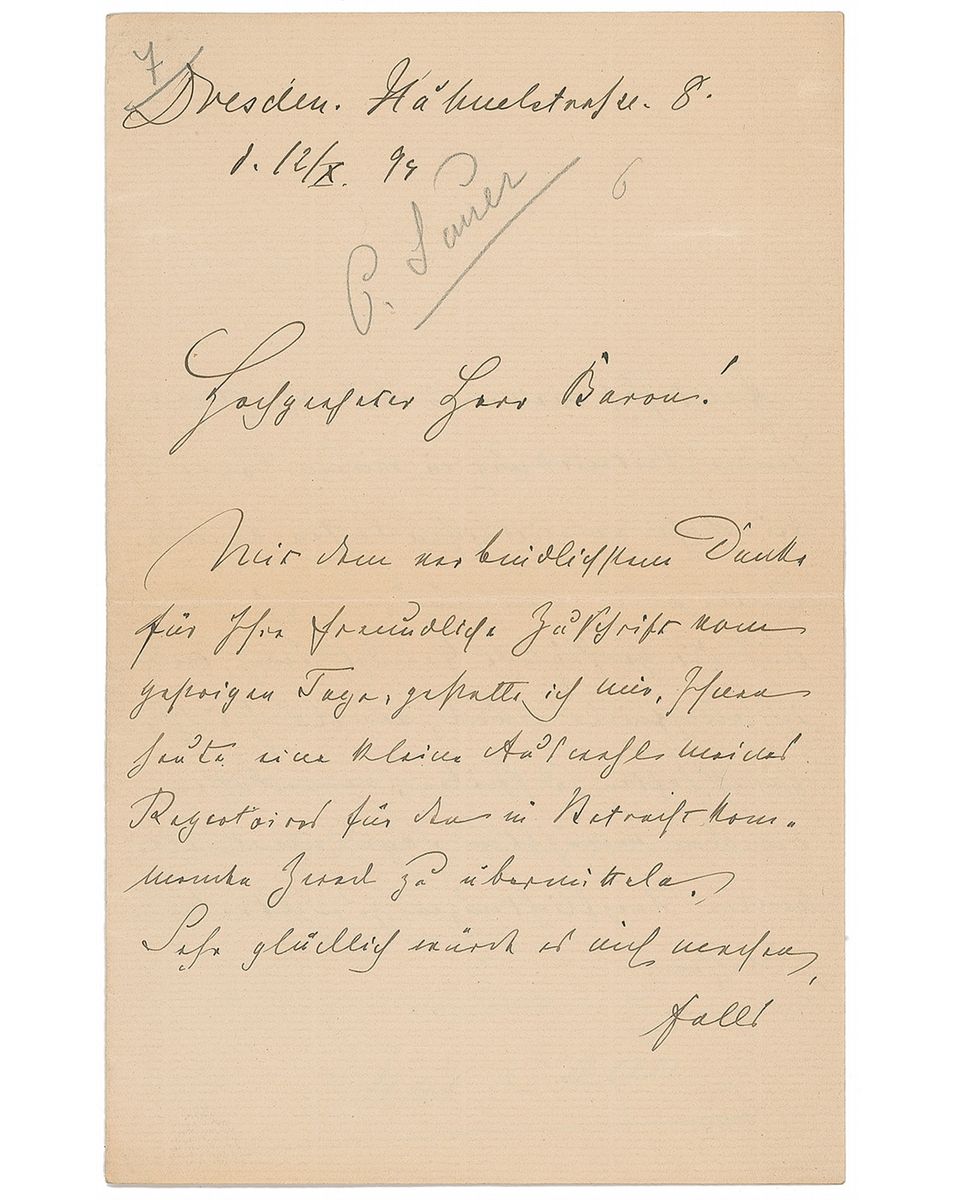 7
Dresden. Hähnelstrasse. 8.
d. 12/X. 94
6
E. Sauer
Hochgeehrter Herr Baron!
Mit dem verbindlichstem Danke
für Ihre freundliche Zuschrift vom
gestrigen Tage, gestatte ich mir, Ihnen
heute eine kleine Auswahl meines
Repertoires für den in Betracht kom-
menden Zweck zu übermitteln.
Sehr glücklich würde es mich machen,
falls